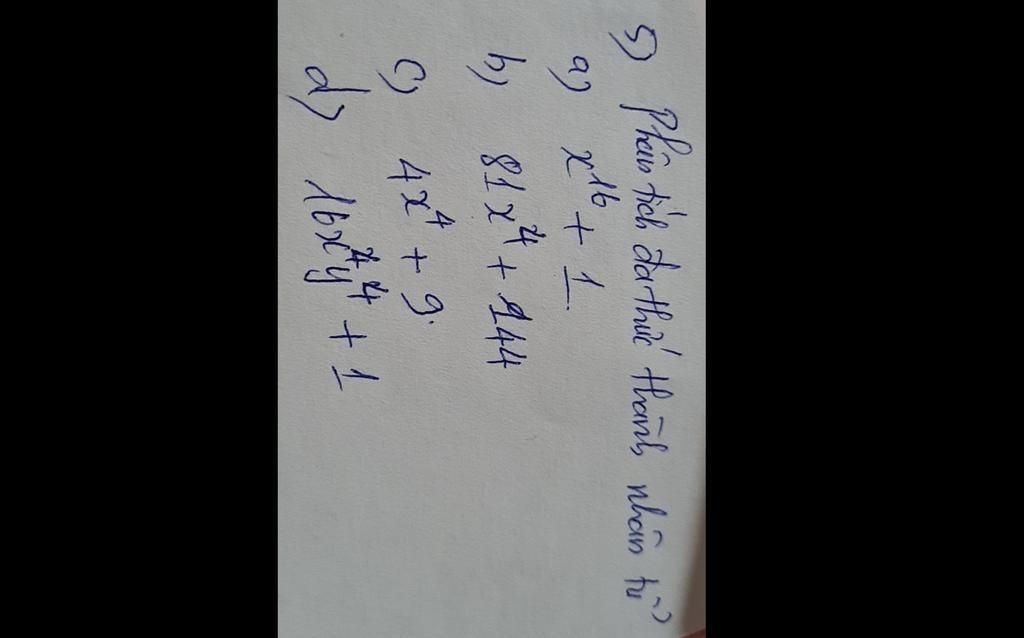 5) Phân tích đa thức thành nhân tử
a) x¹⁶ + 1
b) 81x⁴ + 144
c) 4x⁴ + 9.
d) 16x⁴y⁴ + 1